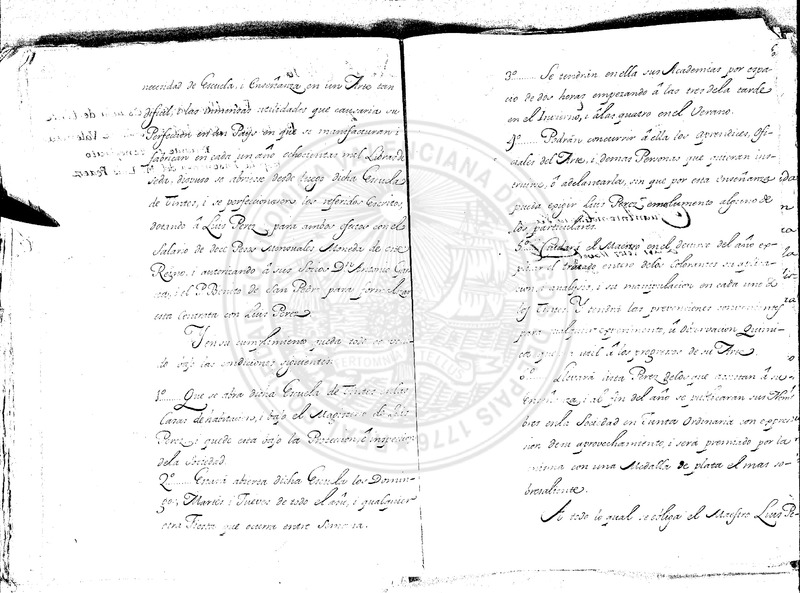 necesidad de Escuela, i Enseñanza en un Arte tan
dificil, i las inmensas utilidades que causaria su
Perfeccion en un Pais en que se manufacturan i
fabrican en cada un año ochocientas mil Libras de
Seda, dispuso se abriesse desde luego dicha Escuela
de Tintes, i se perfeccionasen los referidos Escritos,
dotando á Luis Perez para ambos efectos con el
Salario de doce Pesos Mensuales Moneda de este
Reyno, i autorizando á sus Socios Dn. Antonio
i el P. Benito de San Pedro para formalizar
esta Contrata con Luis Perez.
Y en su cumplimiento queda todo
bajo las condiciones siguientes.
1º Que se abra dicha Escuela de Tintes en las
Casas de habitacion, i bajo el Magisterio de Luis
Perez, i quede esta bajo la Proteccion é inspeccion
de la Sociedad.
2º Estará abierta dicha Escuela los Domin-
gos, Martes i Jueves de todo el año, i qualquier
otra Fiesta que ocurra entre Semana.
3º Se tendrán en ella sus Academias por espa-
cio de dos horas empezando á las tres de la tarde
en el Invierno, i á las quatro en el Verano.
4º Podrán concurrir á ella los aprendices, Ofi-
ciales del Arte, i demas Personas que quieran ins-
truirse, ó adelantarla, sin que por esta Enseñanza
pueda exigir Luis Perez emolumento alguno de
los particulares.
5º el Maestro en el decurso del año ex-
plicar el tratado entero de los Colorantes
i analysis, i su manipulacion en cada uno de
los Tintes. Y tendrá las prevenciones convenientes
para qualquier experimento, ú observacion Quimi-
ca que sea util á los progresos de su Arte.
6º Llevará lista Perez de los que asistan á su
enseñanza, i al fin del año se publicarán sus Nom-
bres en la Sociedad en Junta Ordinaria con expre-
sion de su aprovechamiento, i será premiado por la
misma con una Medalla de plata el mas so-
bresaliente.
A todo lo qual se obliga el Maestro Luis Pe-